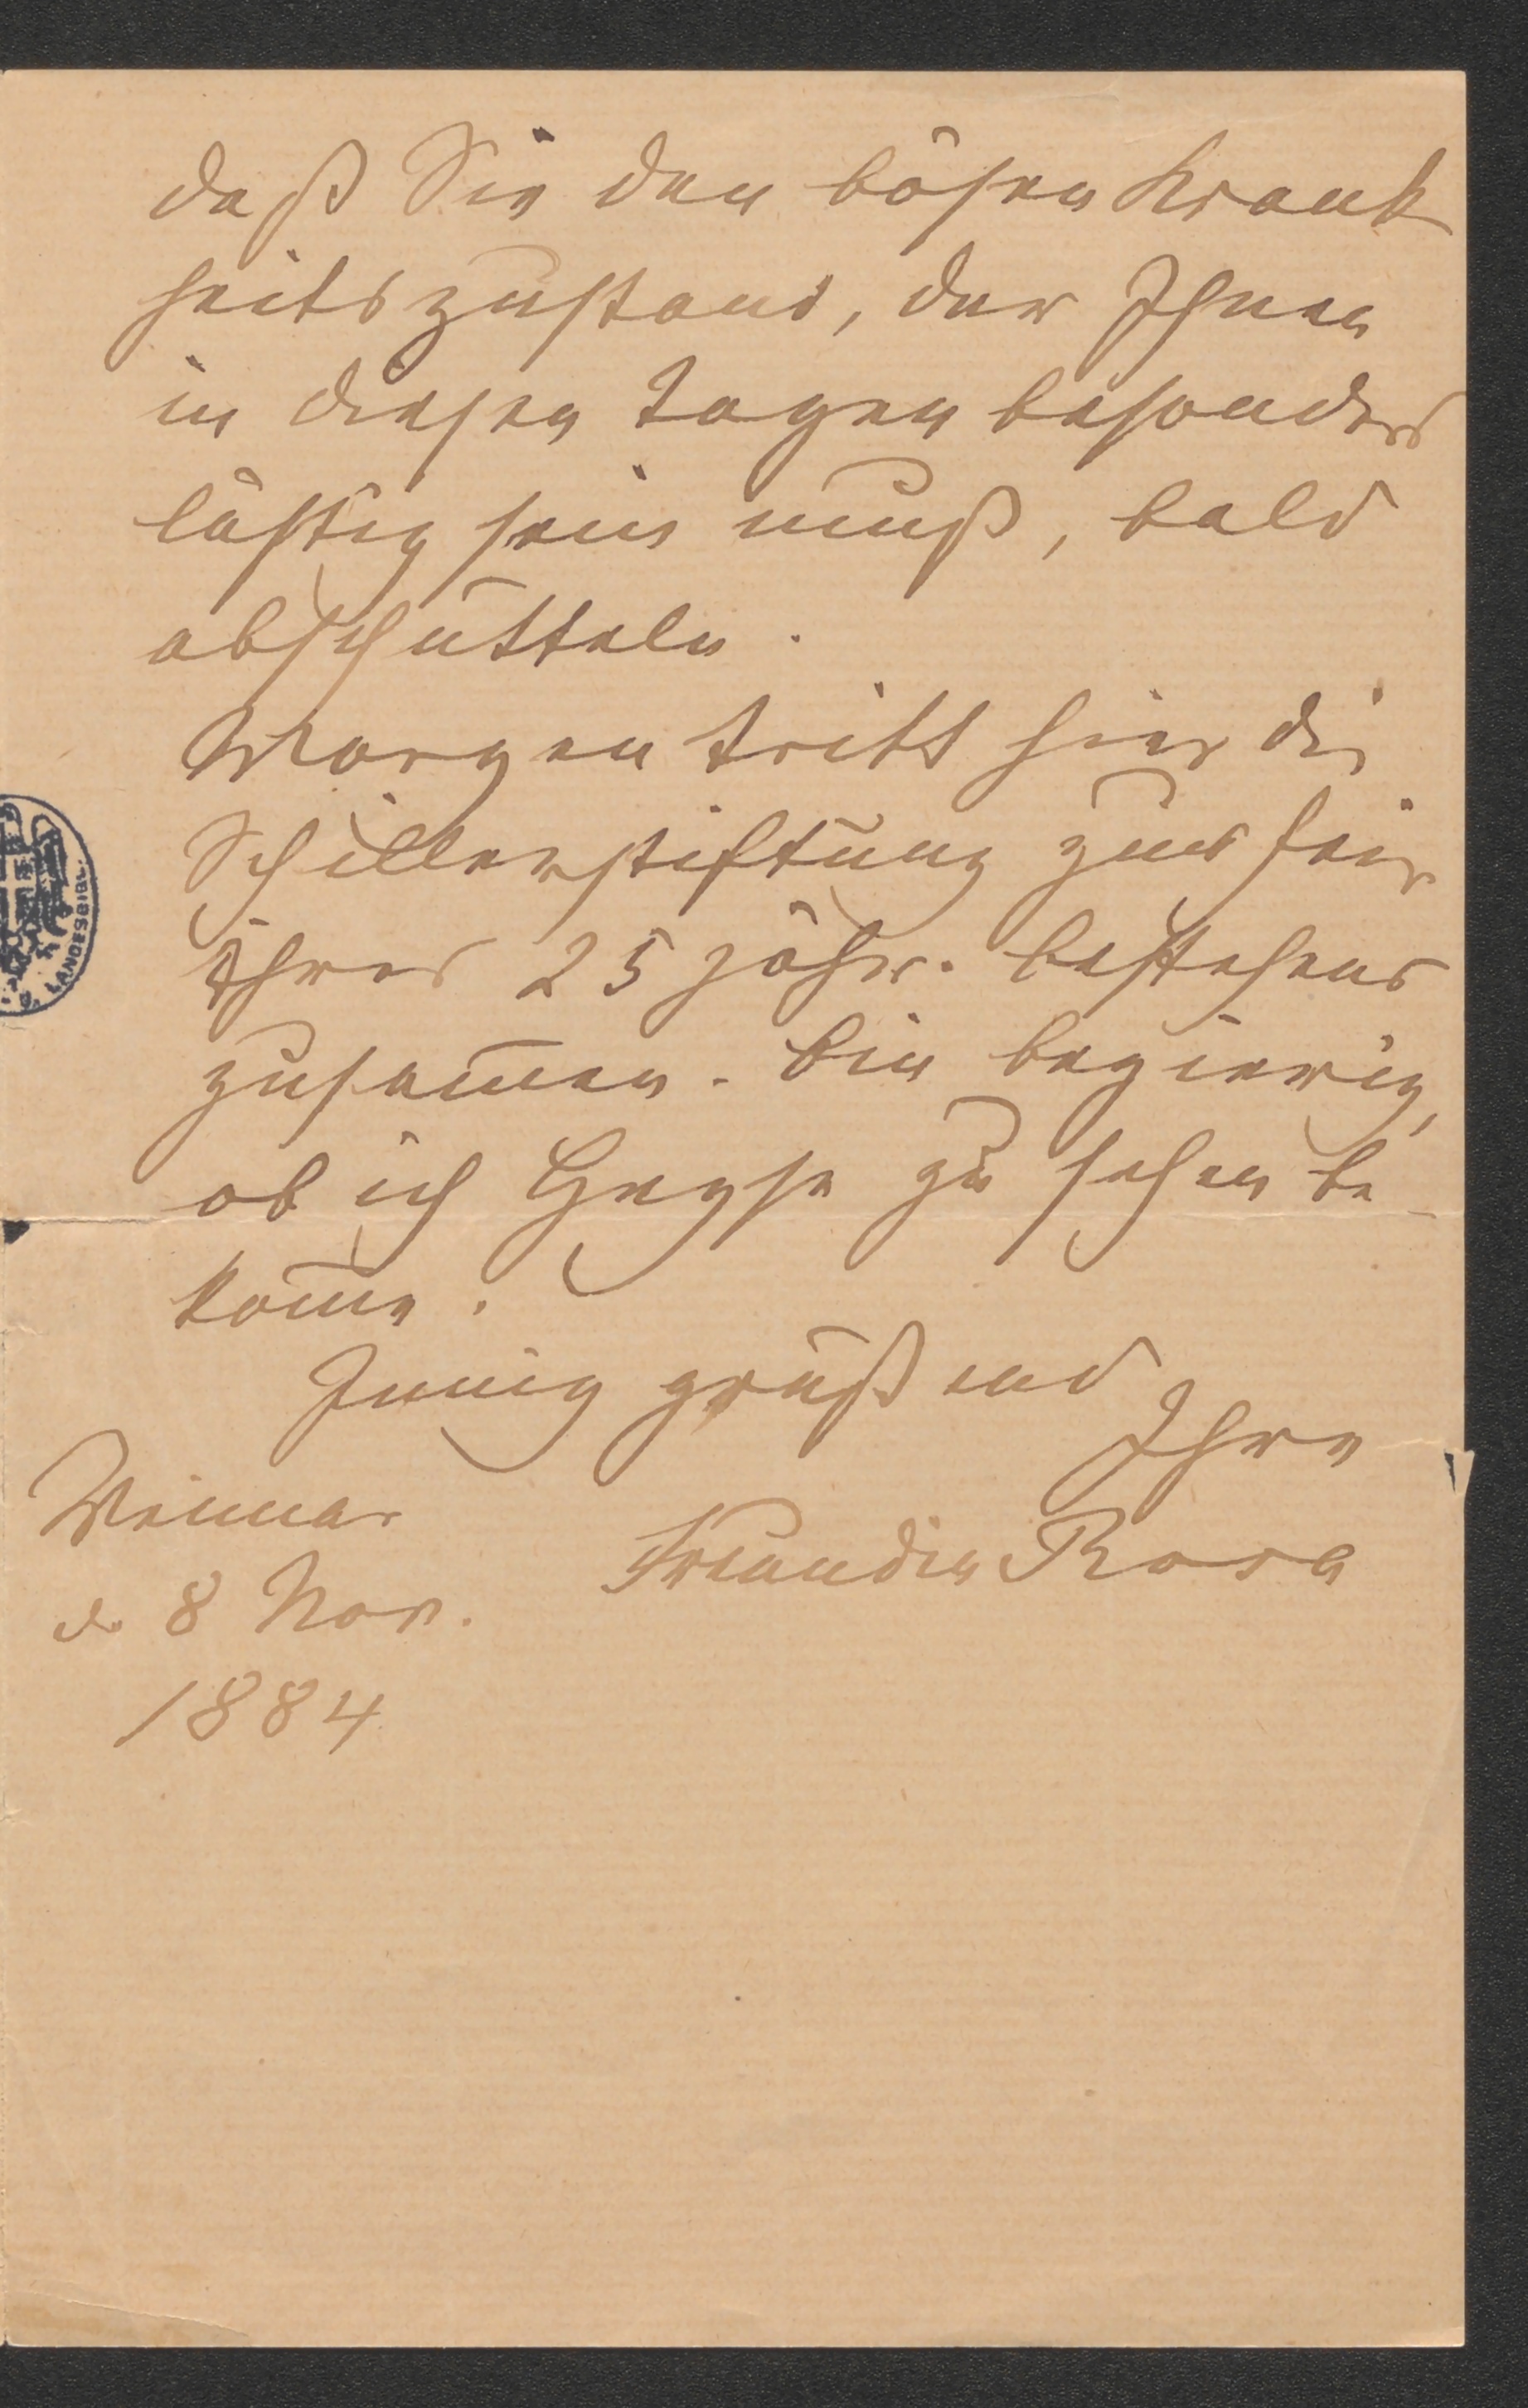 daß Sie den bösen Krank
heitszustand, der Ihnen
in diesen Tagen besonders
lästig sein muß, bald
abschütteln.
Morgen tritt hier die
Schillerstiftung zur Feir
Ihres 25 jähr. Bestehens
zusam̅en. Bin begierig,
ob ich Heyse zu sehen be-
kom̅e.
Innig grüßend
Ihre
Freundin Rosa
Weimar
d. 8 Nov.
1884
LANDESBIBL.